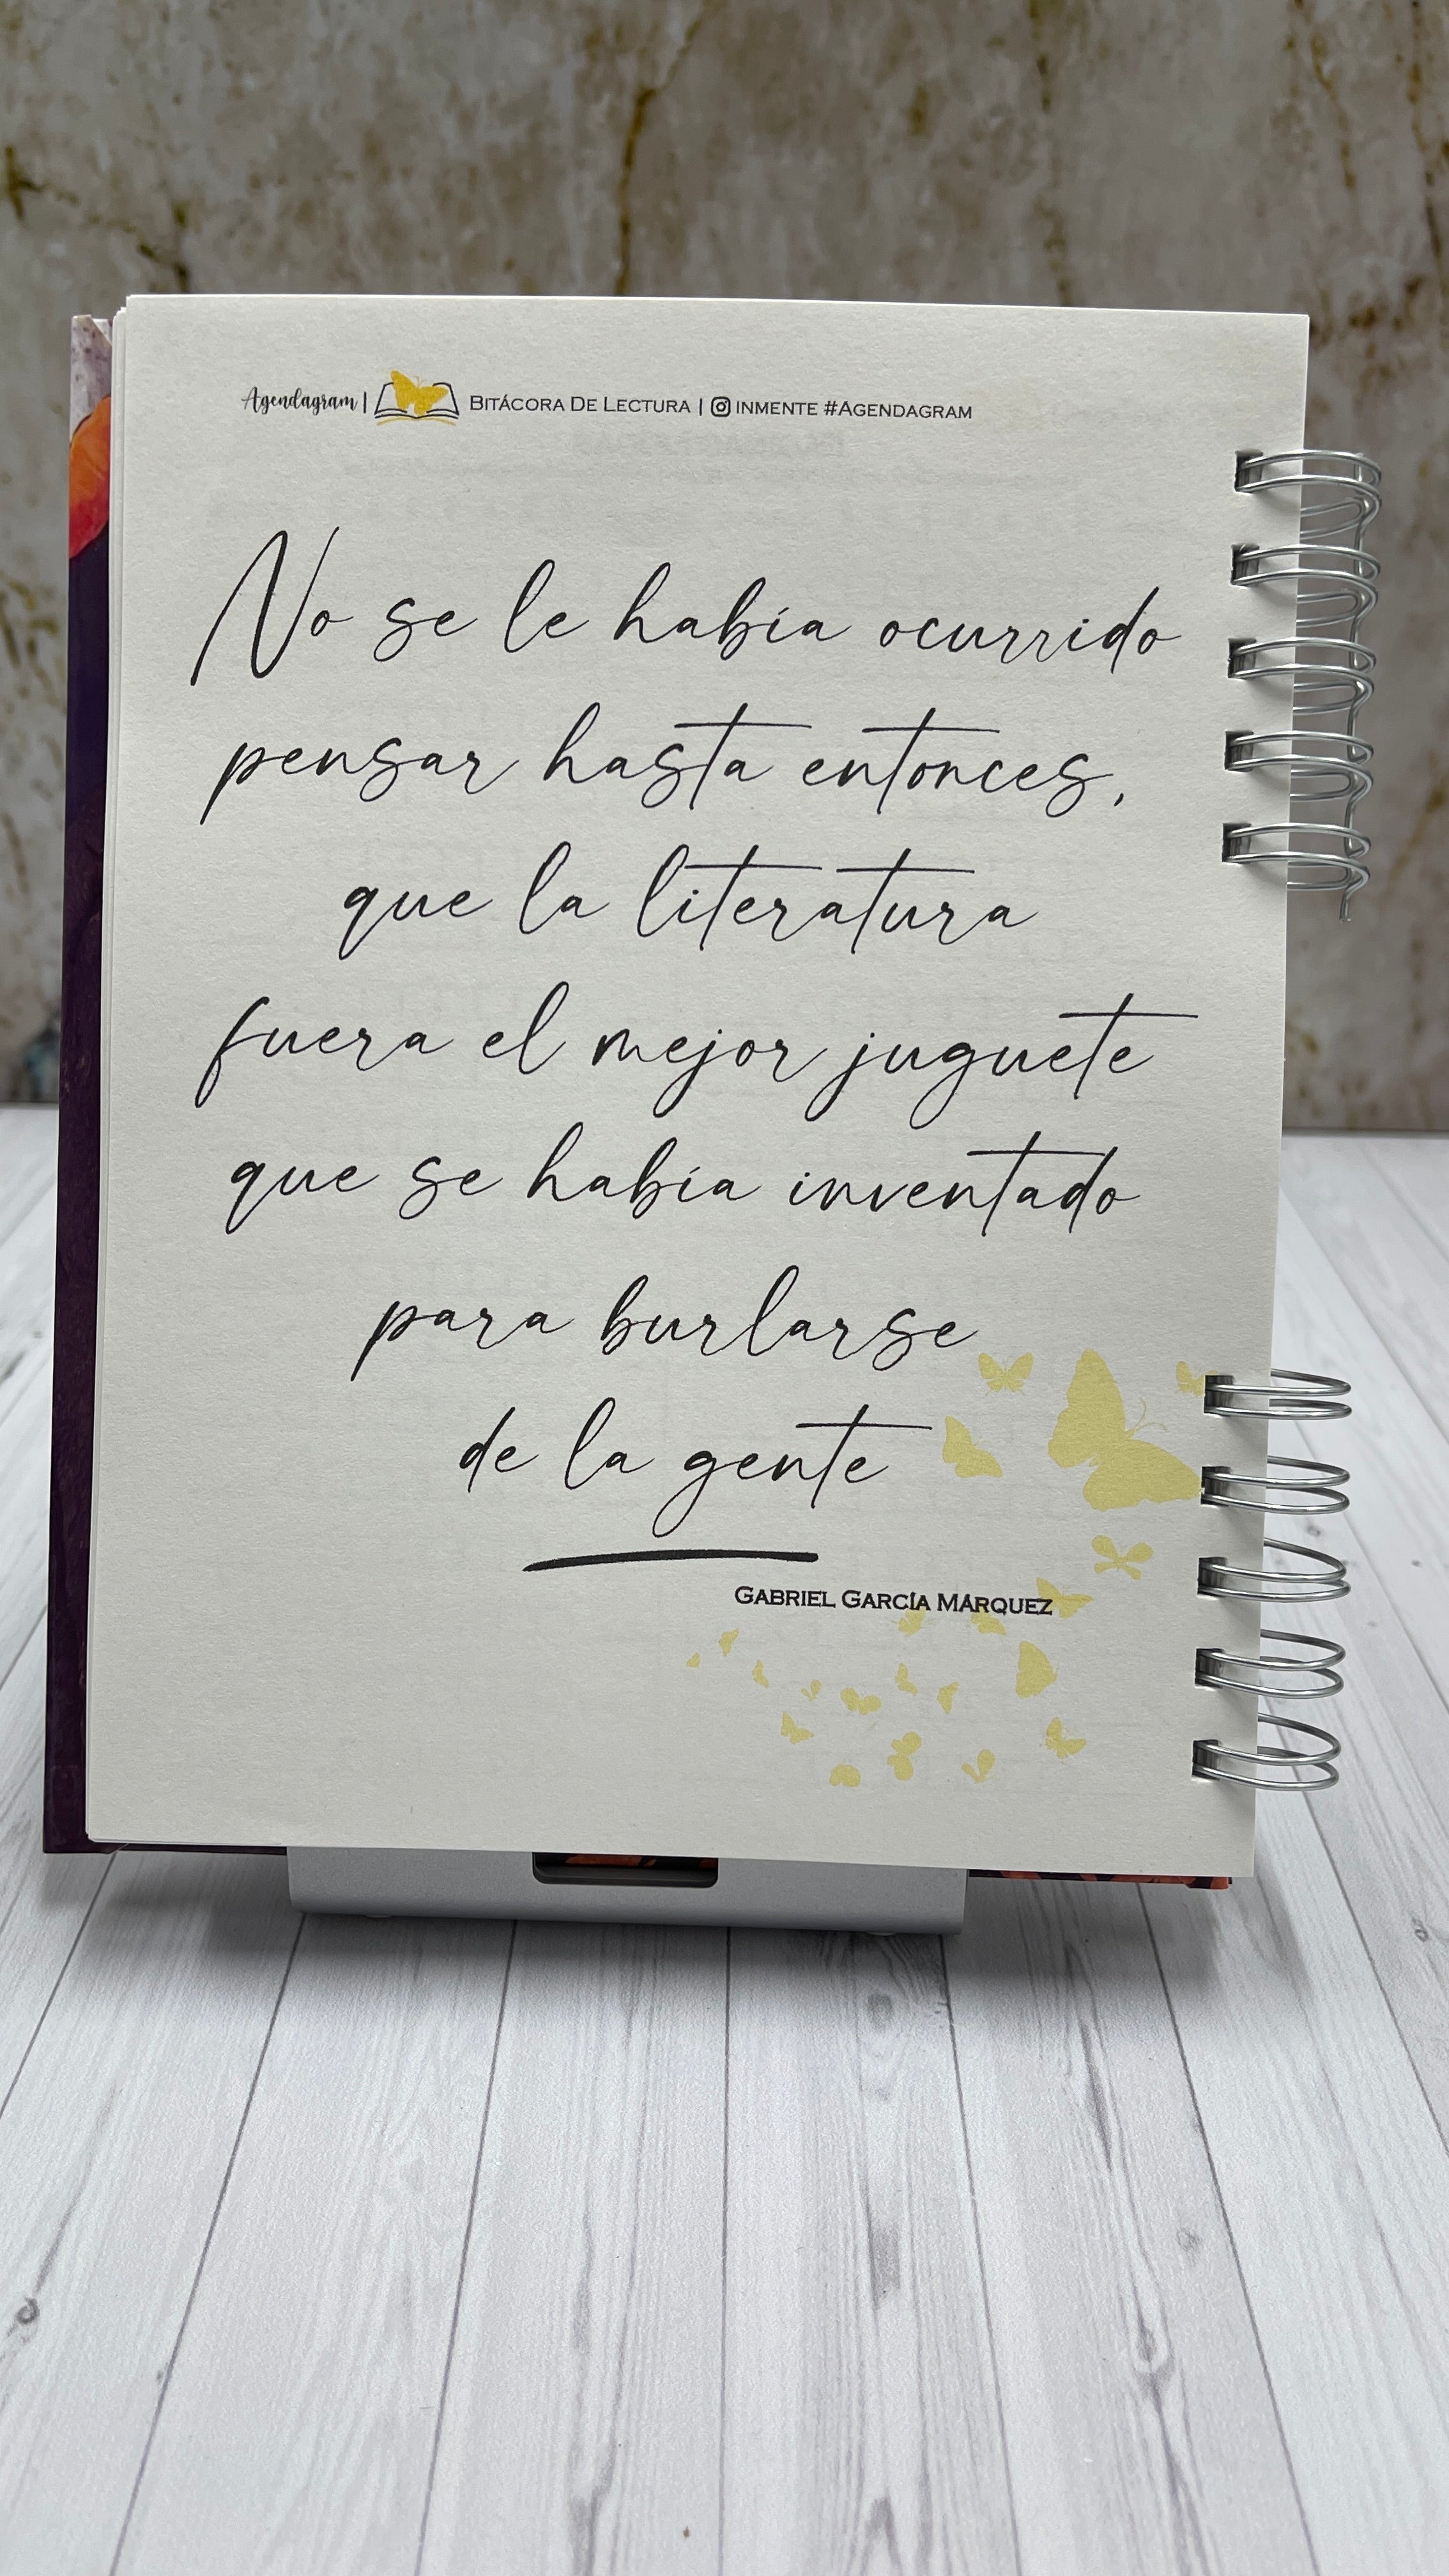 Agendagram | BITÁCORA DE LECTURA | INMENTE #AGENDAGRAM
No se le había ocurrido
pensar hasta entonces,
que la literatura
fuera el mejor juguete
que se había inventado
para burlarse
de la gente
GABRIEL GARCÍA MÁRQUEZ